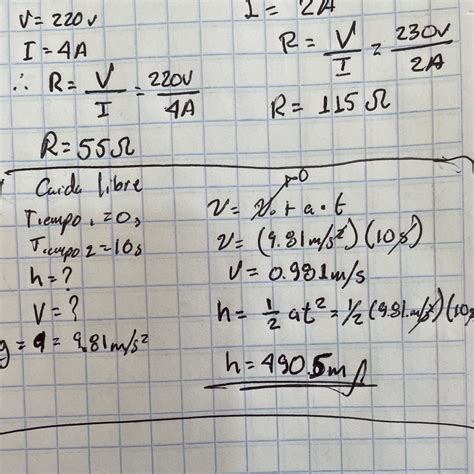 V = 220v
I = 4A
∴ R = V/I = 220V/4A
R = 55Ω
I = 2A
R = V/I = 230V/2A
R = 115 Ω
Caida libre
Tiempo 1 = 0s
Tiempo 2 = 10s
h = ?
V = ?
g = a = 9.81 m/s²
v = v₀ + a · t → 0
v = (9.81 m/s²) (10s)
V = 0.981 m/s
h = 1/2 at² = 1/2 (9.81 m/s²) (10s
h = 490.5m